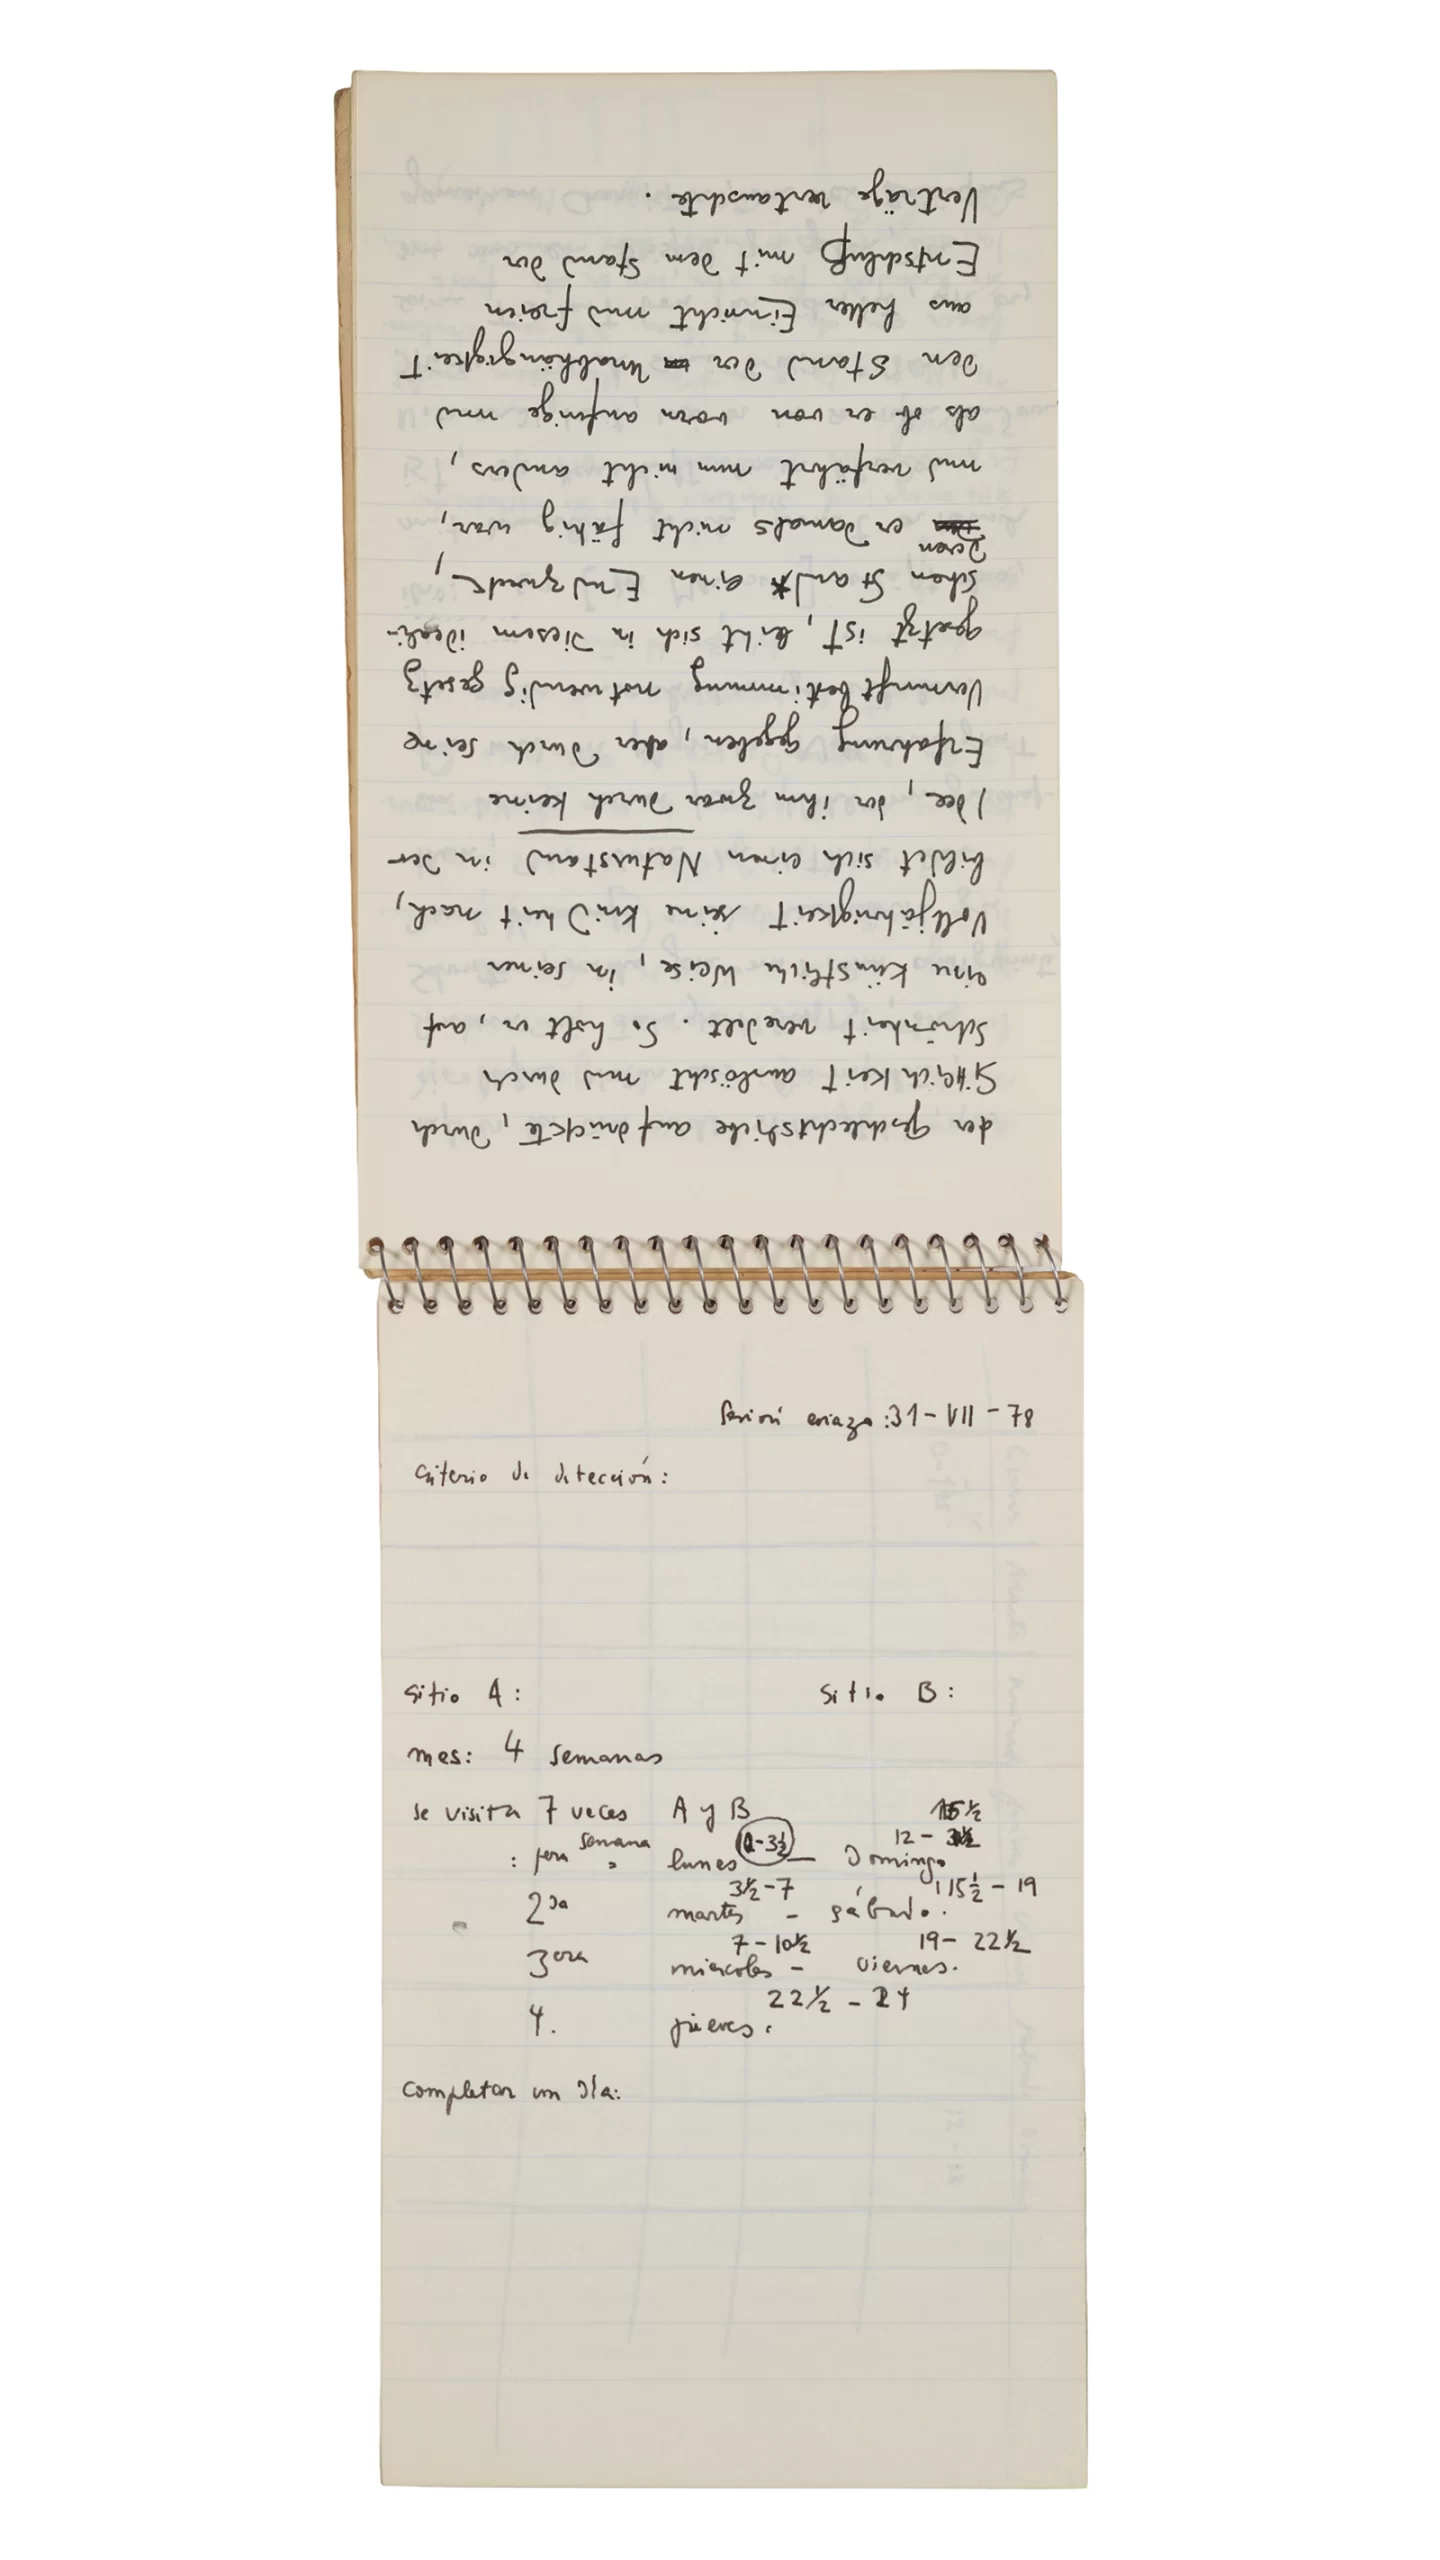 der Geschlechtsliebe aufdrückte, durch
Sittlichkeit auslöscht und durch
Schönheit veredelt. So holt er, auf
eine künstliche Weise, in seiner
Volljährigkeit seine Kindheit nach,
bildet sich einen Naturstand in der
Idee, der ihm zwar durch keine
Erfahrung gegeben, aber durch seine
Vernunftbestimmung notwendig gesetz
gesetzt ist, leiht sich in diesem ideali-
schen Stand einen Endzweck,
deren
er damals nicht fähig war,
und verfährt nun nicht anders,
als ob er von vorn anfinge und
den Stand der Unabhängigkeit
aus heller Einsicht und freien
Entschluß mit dem Stand der
Verträge vertauschte.
Sesión eriazo: 31-VII-78
Criterio de detección:
sitio A: sitio B:
mes: 4 semanas
se visita 7 veces A y B 15½
semana -3½ 12 -
: 1era " lunes — Domingo
3½-7 15½-19
2da martes - sábado.
7-10½ 19-22½
3era miercoles - viernes.
22½ - 24
4. jueves.
completar un día: